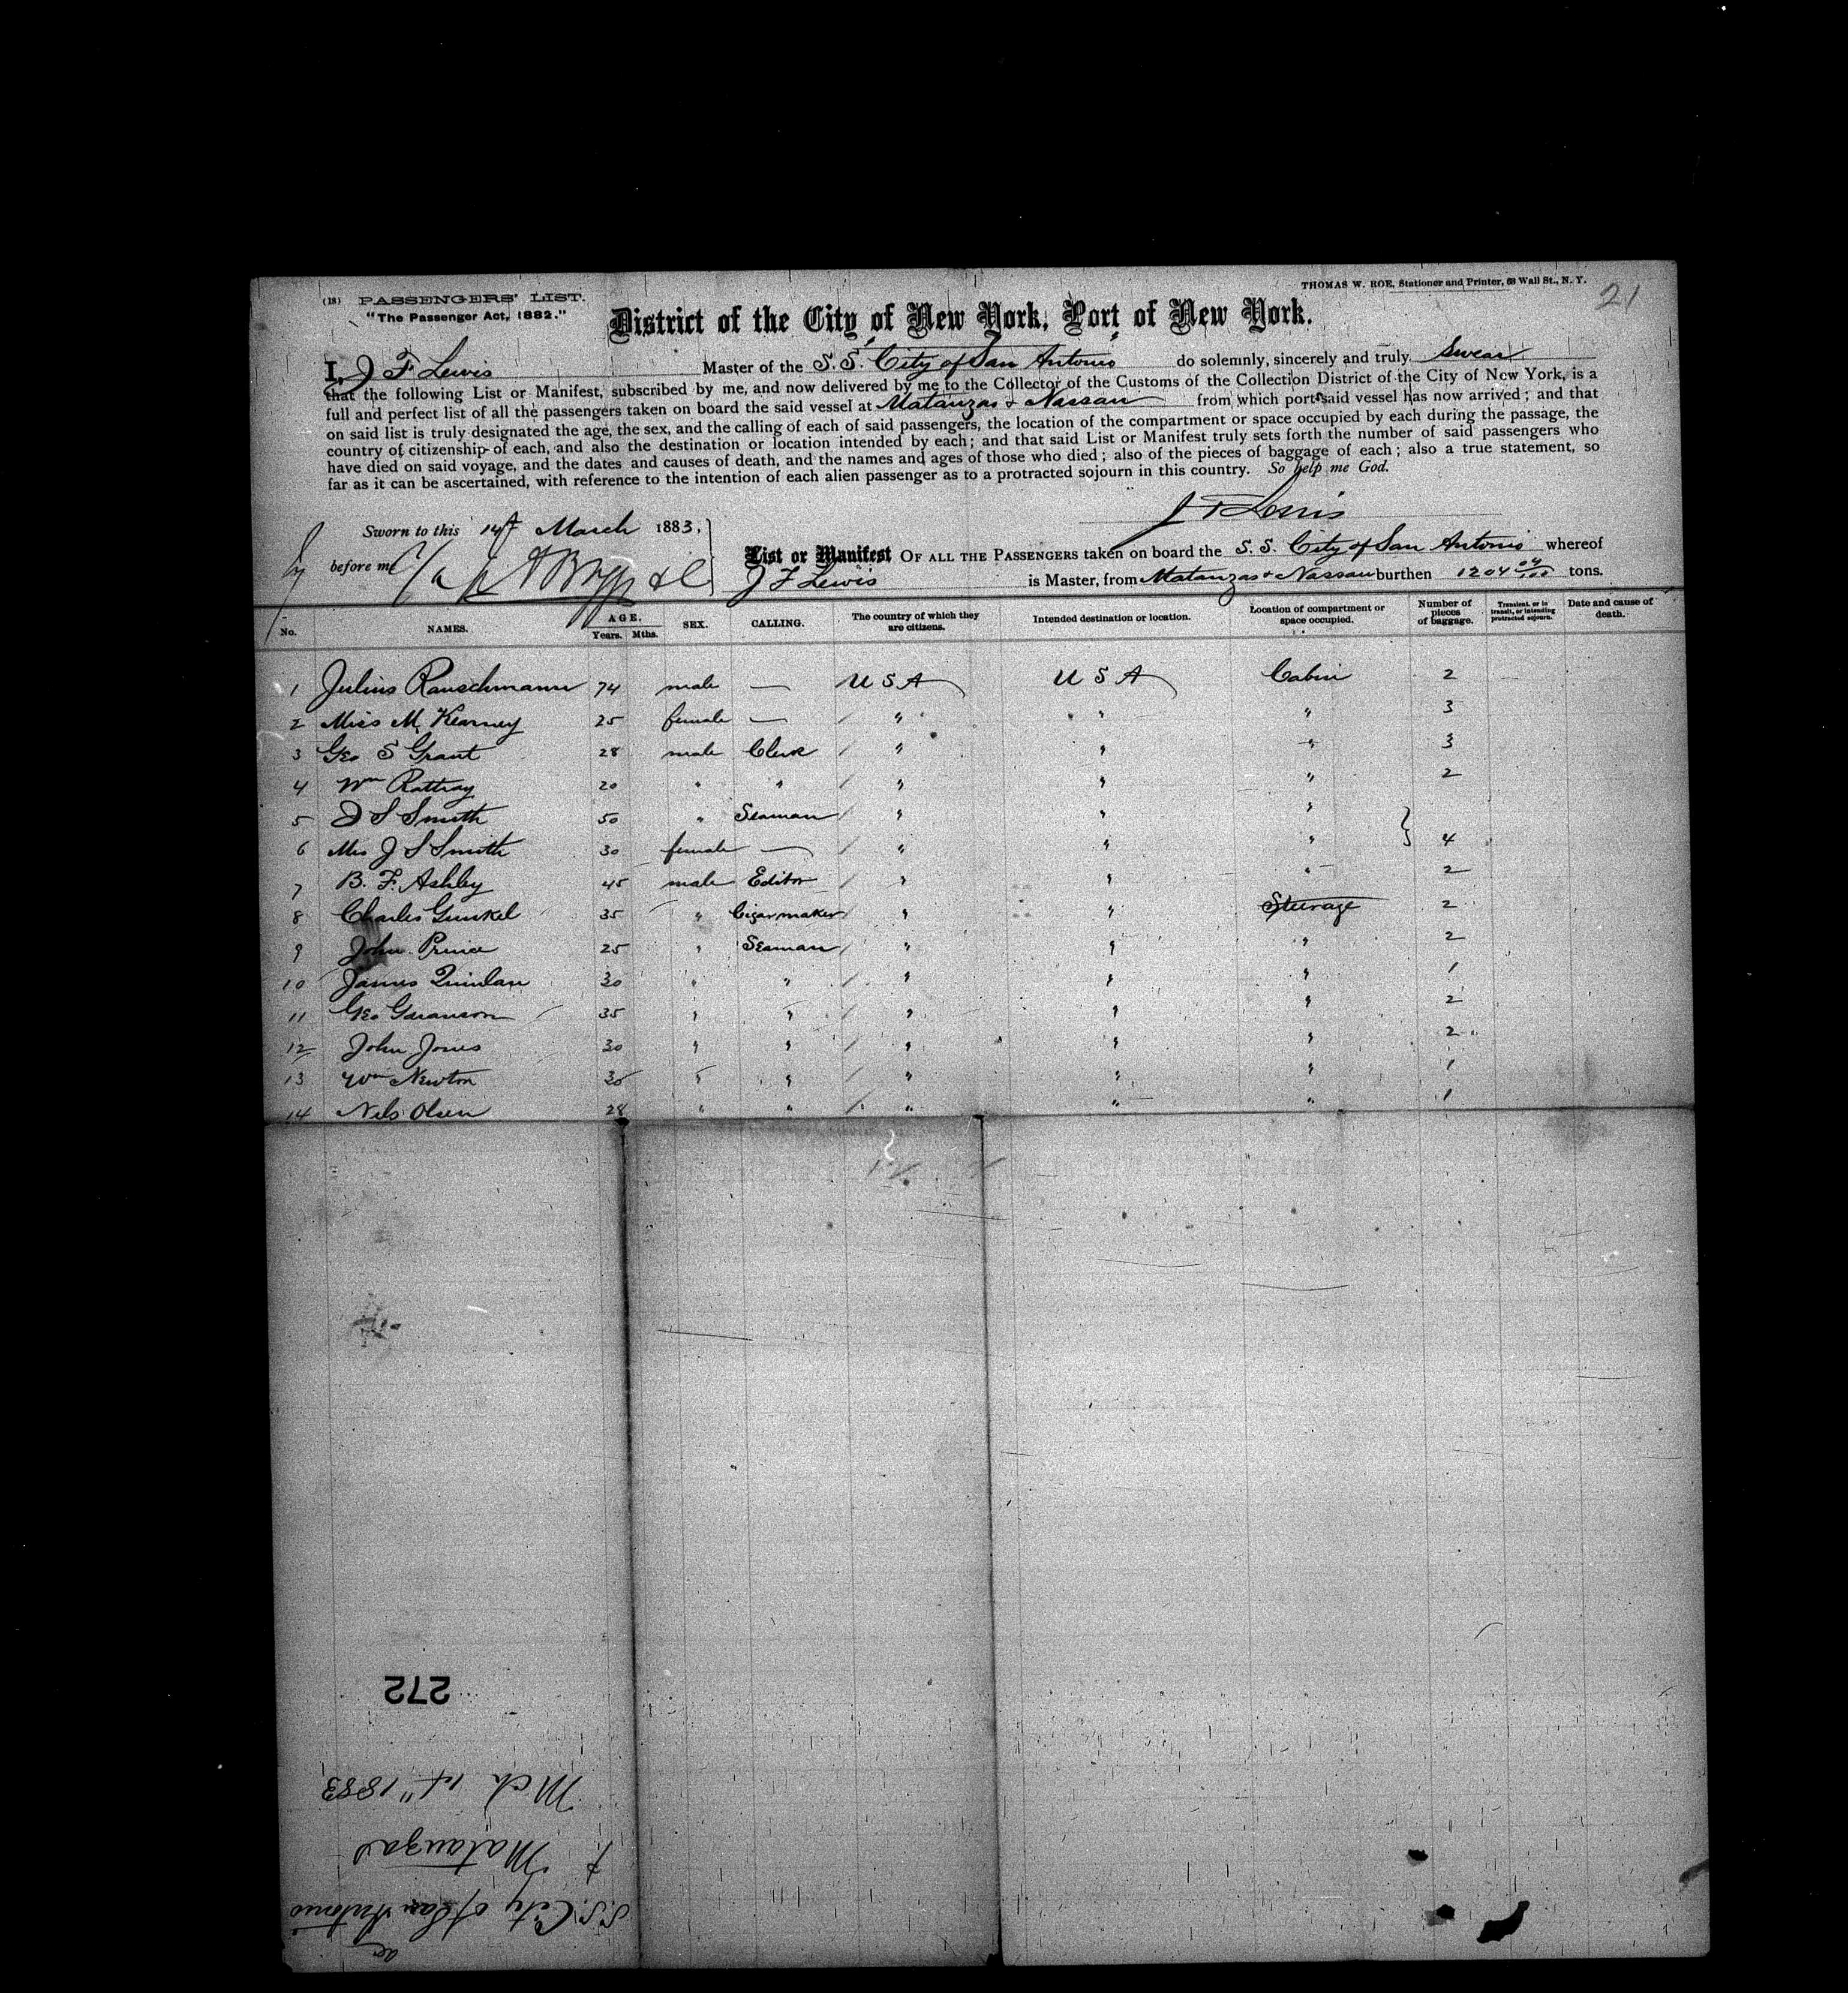 THOMAS W. ROE, Stationer and Printer, 63 Wall St., N. Y.
21
(18) PASSENGERS' LIST.
"The Passenger Act, 1882."
District of the City of New York, Port of New York.
I, J F Lewis Master of the S. S. City of San Antonio do solemnly, sincerely and truly swear
that the following List or Manifest, subscribed by me, and now delivered by me to the Collector of the Customs of the Collection District of the City of New York, is a
full and perfect list of all the passengers taken on board the said vessel at Matanzas & Nassau from which ports said vessel has now arrived; and that
on said list is truly designated the age, the sex, and the calling of each of said passengers, the location of the compartment or space occupied by each during the passage, the
country of citizenship of each, and also the destination or location intended by each; and that said List or Manifest truly sets forth the number of said passengers who
have died on said voyage, and the dates and causes of death, and the names and ages of those who died; also of the pieces of baggage of each; also a true statement, so
far as it can be ascertained, with reference to the intention of each alien passenger as to a protracted sojourn in this country. So help me God.
J F Lewis
Sworn to this 14th March 1883,
before me
List or Manifest OF ALL THE PASSENGERS taken on board the S. S. City of San Antonio whereof
J F Lewis is Master, from Matanzas & Nassau burthen 1204 04/100 tons.
No. NAMES. AGE. Years. Mths. SEX. CALLING. The country of which they are citizens. Intended destination or location. Location of compartment or space occupied. Number of pieces of baggage. Transient, or in transit, or intending protracted sojourn. Date and cause of death.
1 Julius Rauschmann 74 male — U S A U S A Cabin 2
2 Miss M Kearney 25 female — " " " 3
3 Geo S Grant 28 male Clerk " " " 3
4 Wm Rattray 20 " " " " " 2
5 J S Smith 50 " Seaman " " "
6 Mrs J S Smith 30 female — " " " } 4
7 B. F. Ashley 45 male Editor " " " 2
8 Charles Gunkel 35 " Cigarmaker " " Steerage 2
9 John Prince 25 " Seaman " " " 2
10 James Quinlan 30 " " " " " 1
11 Geo 35 " " " " " 2
12 John Jones 30 " " " " " 2
13 Wm Newton 30 " " " " " 1
14 Nels Olsen 28 " " " " " 1
272
Mch 14" 1883
f. Matanzas
S.S. City of San Antonio